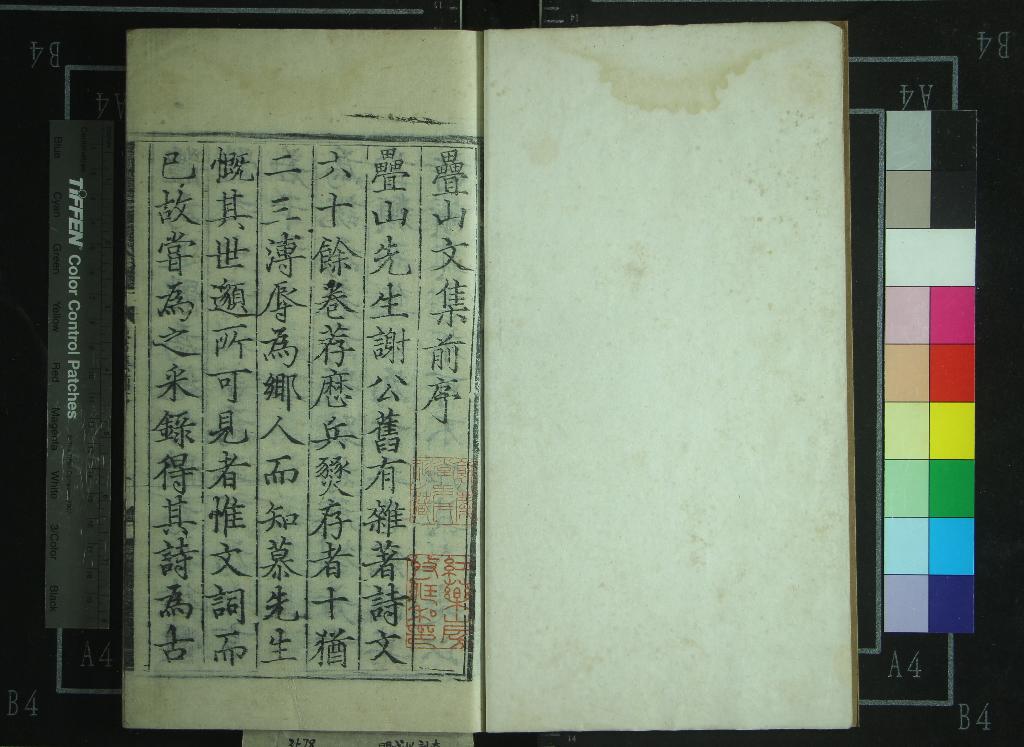 疊山文集前序
疊山先生謝公舊有雜著詩文
六十餘卷荐歷兵燹存者十猶
二三溥辱為鄉人而知慕先生
慨其世邈所可見者惟文詞而
已故嘗為之采錄得其詩為古
紅藥山房收藏私印
TIFFEN Color Control Patches
Blue Cyan Green Yellow Red Magenta White 3/Color Black
B4
A4
B4
A4
A4
B4
A4
B4